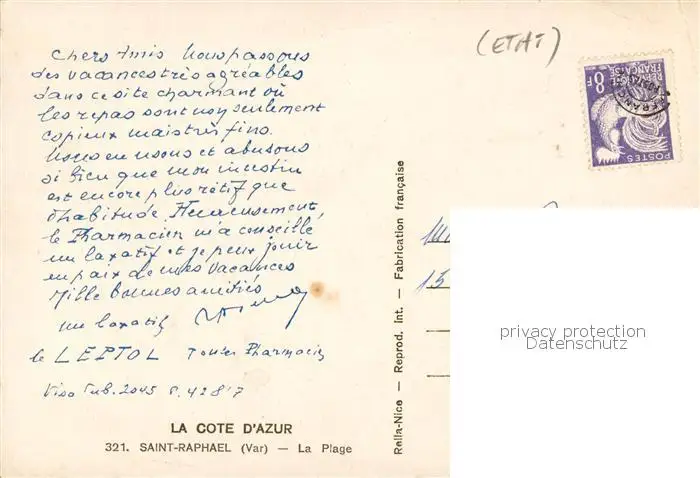 Chers Amis Nous passons
des vacances très agréables
dans ce site charmant où
les repas sont non seulement
copieux mais très fins.
Nous en usons et abusons
si bien que mon intestin
est encore plus rétif que
d'habitude. Heureusement,
le Pharmacien m'a conseillé
un laxatif et je peux jouir
en paix de mes vacances
Mille bonnes amitiés
un laxatif
le LEPTOL Toutes Pharmacies
Visa Pub. 2045 P. 4287
LA COTE D'AZUR
321. SAINT-RAPHAEL (Var) — La Plage
Rella-Nice — Reprod. Int. — Fabrication française
(ETAT)
8F
REPUBLIQUE
FRANÇAISE
POSTES
15
privacy protection
Datenschutz